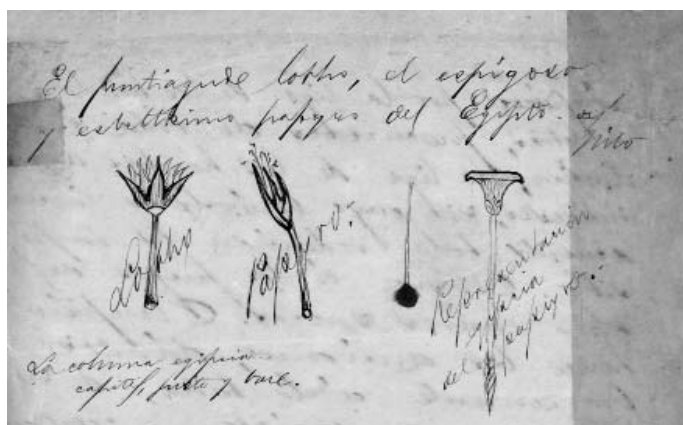 El puntiagudo lotho, el espigoso
y esbeltisimo papyro del Egipto. del
Nilo
Lotho
Papyro:
Representación
del papyro:
La columna egipcia
capitel, fuste y base.